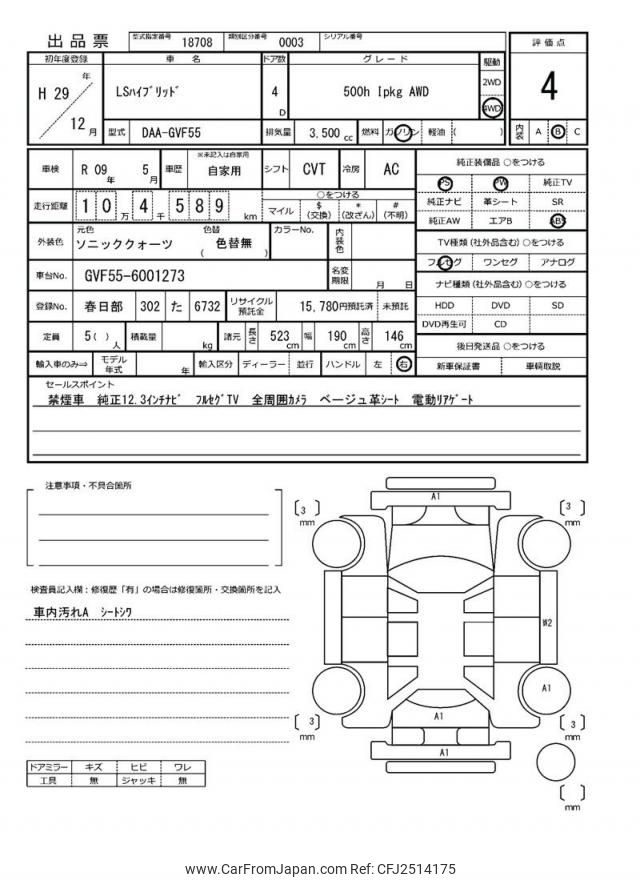 出品票 型式指定番号 18708 類別区分番号 0003 シリアル番号
初年度登録 車 名 ドア数 グレード 駆動 評価点
H 29 年 12 月 LSﾊｲﾌﾞﾘｯﾄﾞ 4 D 500h Ipkg AWD 2WD 4WD 4
型式 DAA-GVF55 排気量 3,500 cc 燃料 ガソリン 軽油 ( ) 内装 A B C
車検 R 09 年 5 月 車歴 ※未記入は自家用 自家用 シフト CVT 冷房 AC 純正装備品 ○をつける
PS PW 純正TV
走行距離 1 0 万 4 千 5 8 9 km ○をつける
マイル $ (交換) * (改ざん) # (不明) 純正ナビ 革シート SR
純正AW エアB ABS
外装色 元色 ソニッククォーツ 色替 ( 色替無 ) カラーNo. 内装色 TV種類 (社外品含む) ○をつける
フルセグ ワンセグ アナログ
車台No. GVF55-6001273 名変期限 月 日 ナビ種類 (社外品含む) ○をつける
登録No. 春日部 302 た 6732 リサイクル預託金 15,780円預託済 未預託 HDD DVD SD
DVD再生可 CD
定員 5( ) 人 積載量 kg 諸元 長さ 523 cm 幅 190 cm 高さ 146 cm 後日発送品 ○をつける
輸入車のみ⇒ モデル年式 年 輸入区分 ディーラー 並行 ハンドル 左 右 新車保証書 車輌取説
セールスポイント
禁煙車 純正12.3ｲﾝﾁﾅﾋﾞ ﾌﾙｾｸﾞTV 全周囲ｶﾒﾗ ベージュ革ｼｰﾄ 電動ﾘｱｹﾞｰﾄ
注意事項・不具合箇所
A1
[ 3 ] mm [ 3 ] mm
検査員記入欄：修復歴「有」の場合は修復箇所・交換箇所を記入
車内汚れA ｼｰﾄｼﾜ
W2
A1
A1
[ 3 ] mm [ 3 ] mm
A1
ドアミラー キズ ヒビ ワレ
工具 無 ジャッキ 無
[ ] mm
www.CarFromJapan.com Ref: CFJ2514175